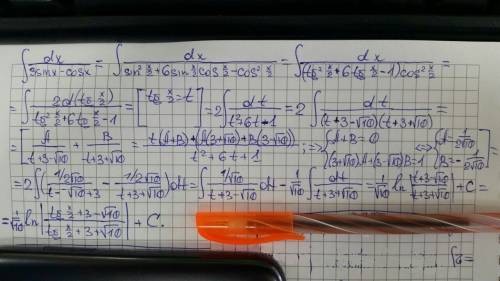 ∫ dx/(3sinx-cosx) = ∫ dx/(sin² x/2 + 6sin x/2 cos x/2 - cos² x/2) = ∫ dx/((tg² x/2 + 6tg x/2 - 1)cos² x/2) =
= ∫ 2d(tg x/2)/(tg² x/2 + 6tg x/2 - 1) = [tg x/2 = t] = 2∫ dt/(t²+6t-1) = 2∫ dt/((t+3-√10)(t+3+√10)) =
= [A/(t+3-√10) + B/(t+3+√10) = (t(A+B)+A(3+√10)+B(3-√10))/(t²+6t-1); ⇒ {A+B=0 (3+√10)A+(3-√10)B=1 ⇔ {A=1/2√10 B=-1/2√10] =
= 2∫(1/2√10/(t-√10+3) - 1/2√10/(t+3+√10))dt = ∫ 1/√10/(t+3-√10) dt - 1/√10 ∫ dt/(t+3+√10) = 1/√10 ln|(t+3-√10)/(t+3+√10)| + C =
= 1/√10 ln|(tg x/2 + 3 - √10)/(tg x/2 + 3 + √10)| + C.